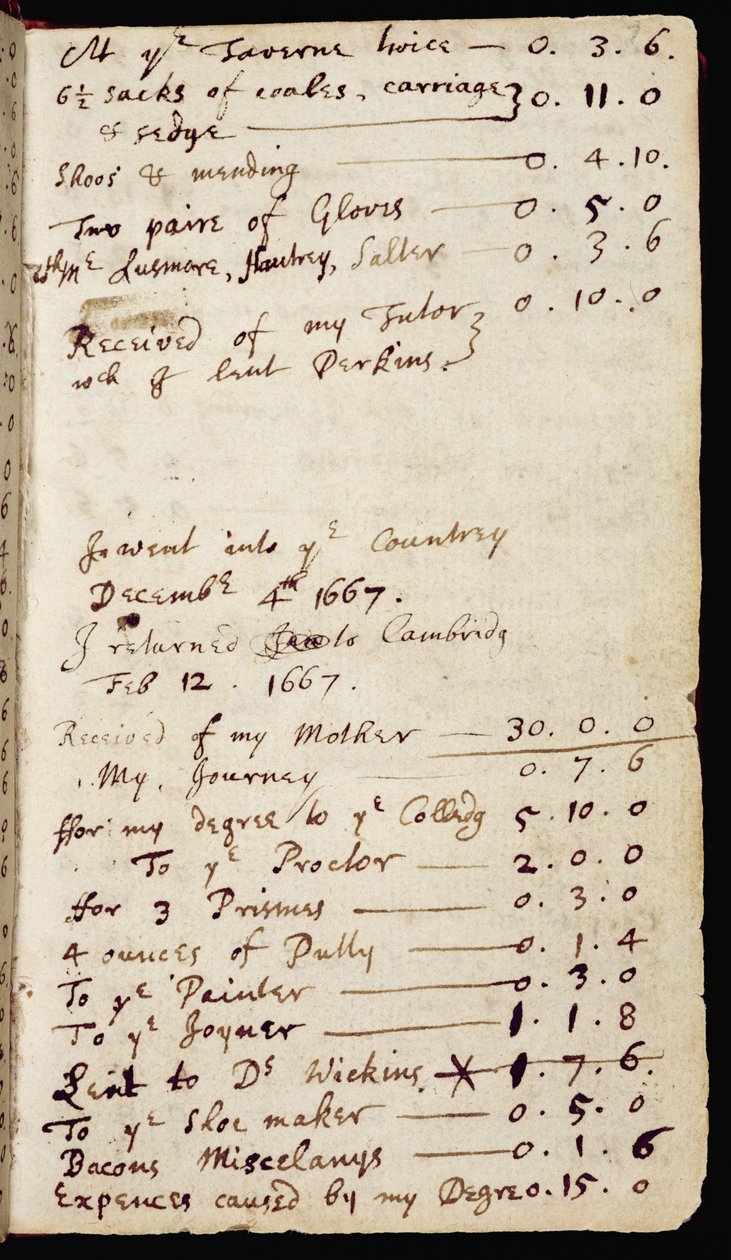 At yᵉ Taverne twice — 0. 3. 6.
6½ sacks of coales, carriage } 0. 11. 0
& sedge —
Shoos & mending — 0. 4. 10.
Two paire of Gloves — 0. 5. 0
Lusmore, Hautrey, Salter — 0. 3. 6
Received of my Tutor } 0. 10. 0
wch I lent Perkins.
I went into yᵉ Countrey
Decembᵉ 4th 1667.
I returned to Cambridg
Feb 12. 1667.
Received of my Mother — 30. 0. 0
My Journey — 0. 7. 6
ffor my degree to yᵉ Colledg 5. 10. 0
To yᵉ Proctor — 2. 0. 0
ffor 3 Prismes — 0. 3. 0
4 ounces of Putty — 0. 1. 4
To yᵉ Painter — 0. 3. 0
To yᵉ Joyner — 1. 1. 8
Lent to Dˢ Wickins X 1. 7. 6.
To yᵉ Shoe maker — 0. 5. 0
Bacons Miscelanys — 0. 1. 6
Expences caused by my Degre 0. 15. 0